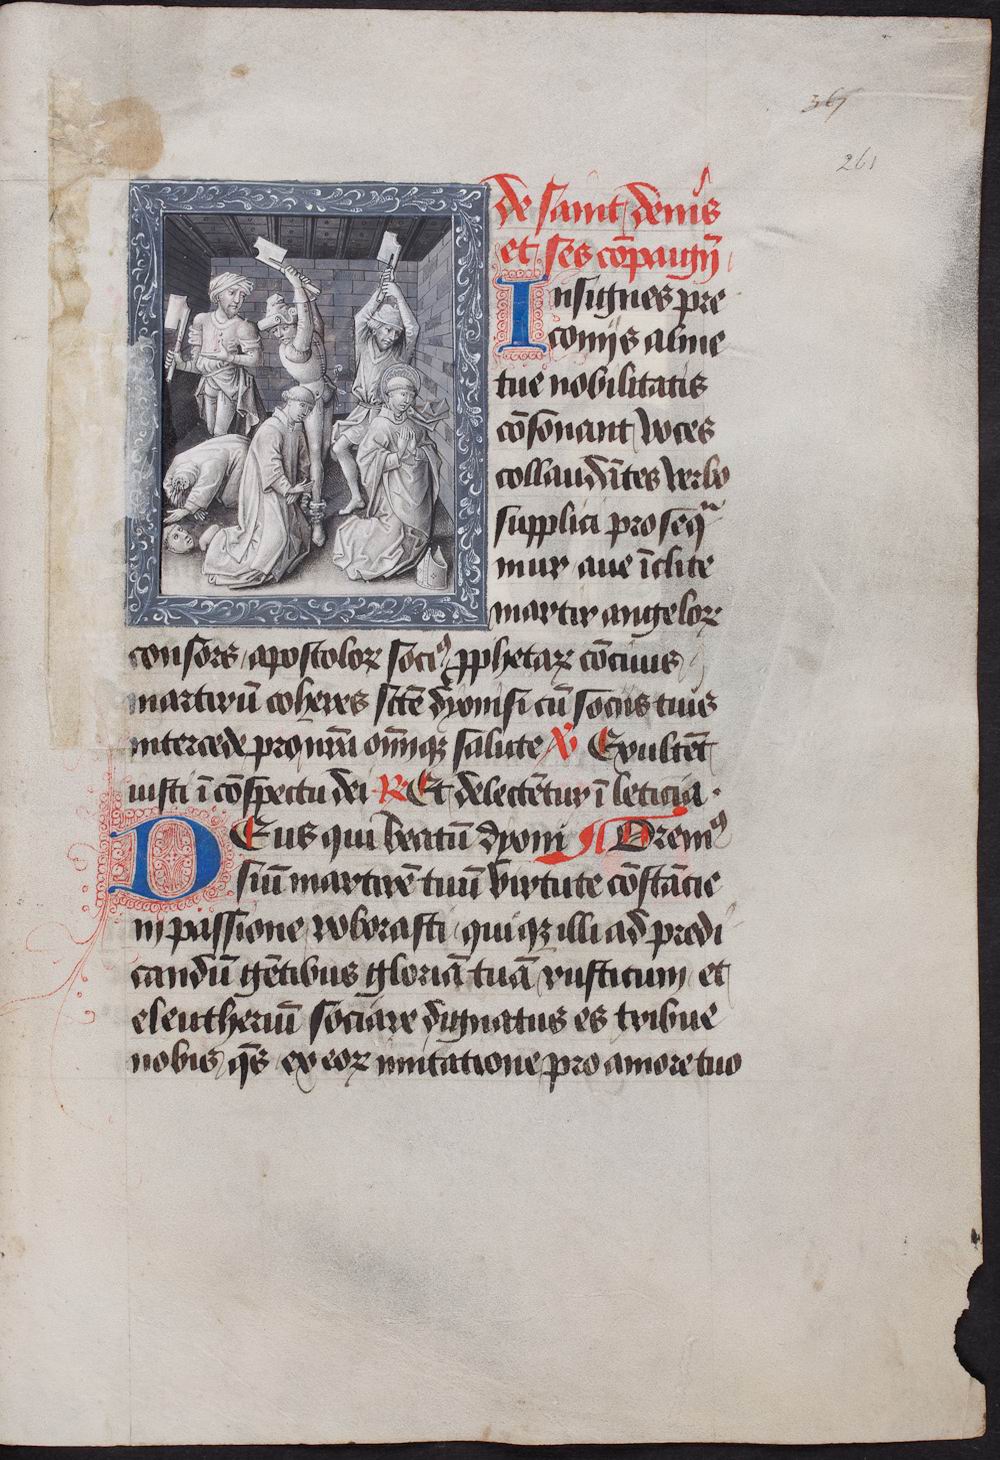 261
de saint denis
et ses cōpaignֿ
Insignes pre
conijs alme
tue nobilitatis
cōsonant voces
collaudātes verbo
supplici pro seqͣ
mur aue īclite
martir angeloꝝ
consors apostoloꝝ sociꝰ ꝓphetaꝝ cōciuis
martirū coheres sctē dyonisi cū sociis tuis
intercede pro nrā omīqꝫ salute ℣ Exultēt
iusti ī cōspectu dei ℟ Et delectētur ī leticia.
DEus qui beatū dyoni ¶ Oremꝰ
siū martirē tuū virtute cōstācie
in passione roborasti quiqꝫ illi ad predi
candū gētibus gloriā tuā rusticum et
eleutheriū sociare dignatus es tribue
nobis qs̄ ex eoꝝ imitatione pro amore tuo